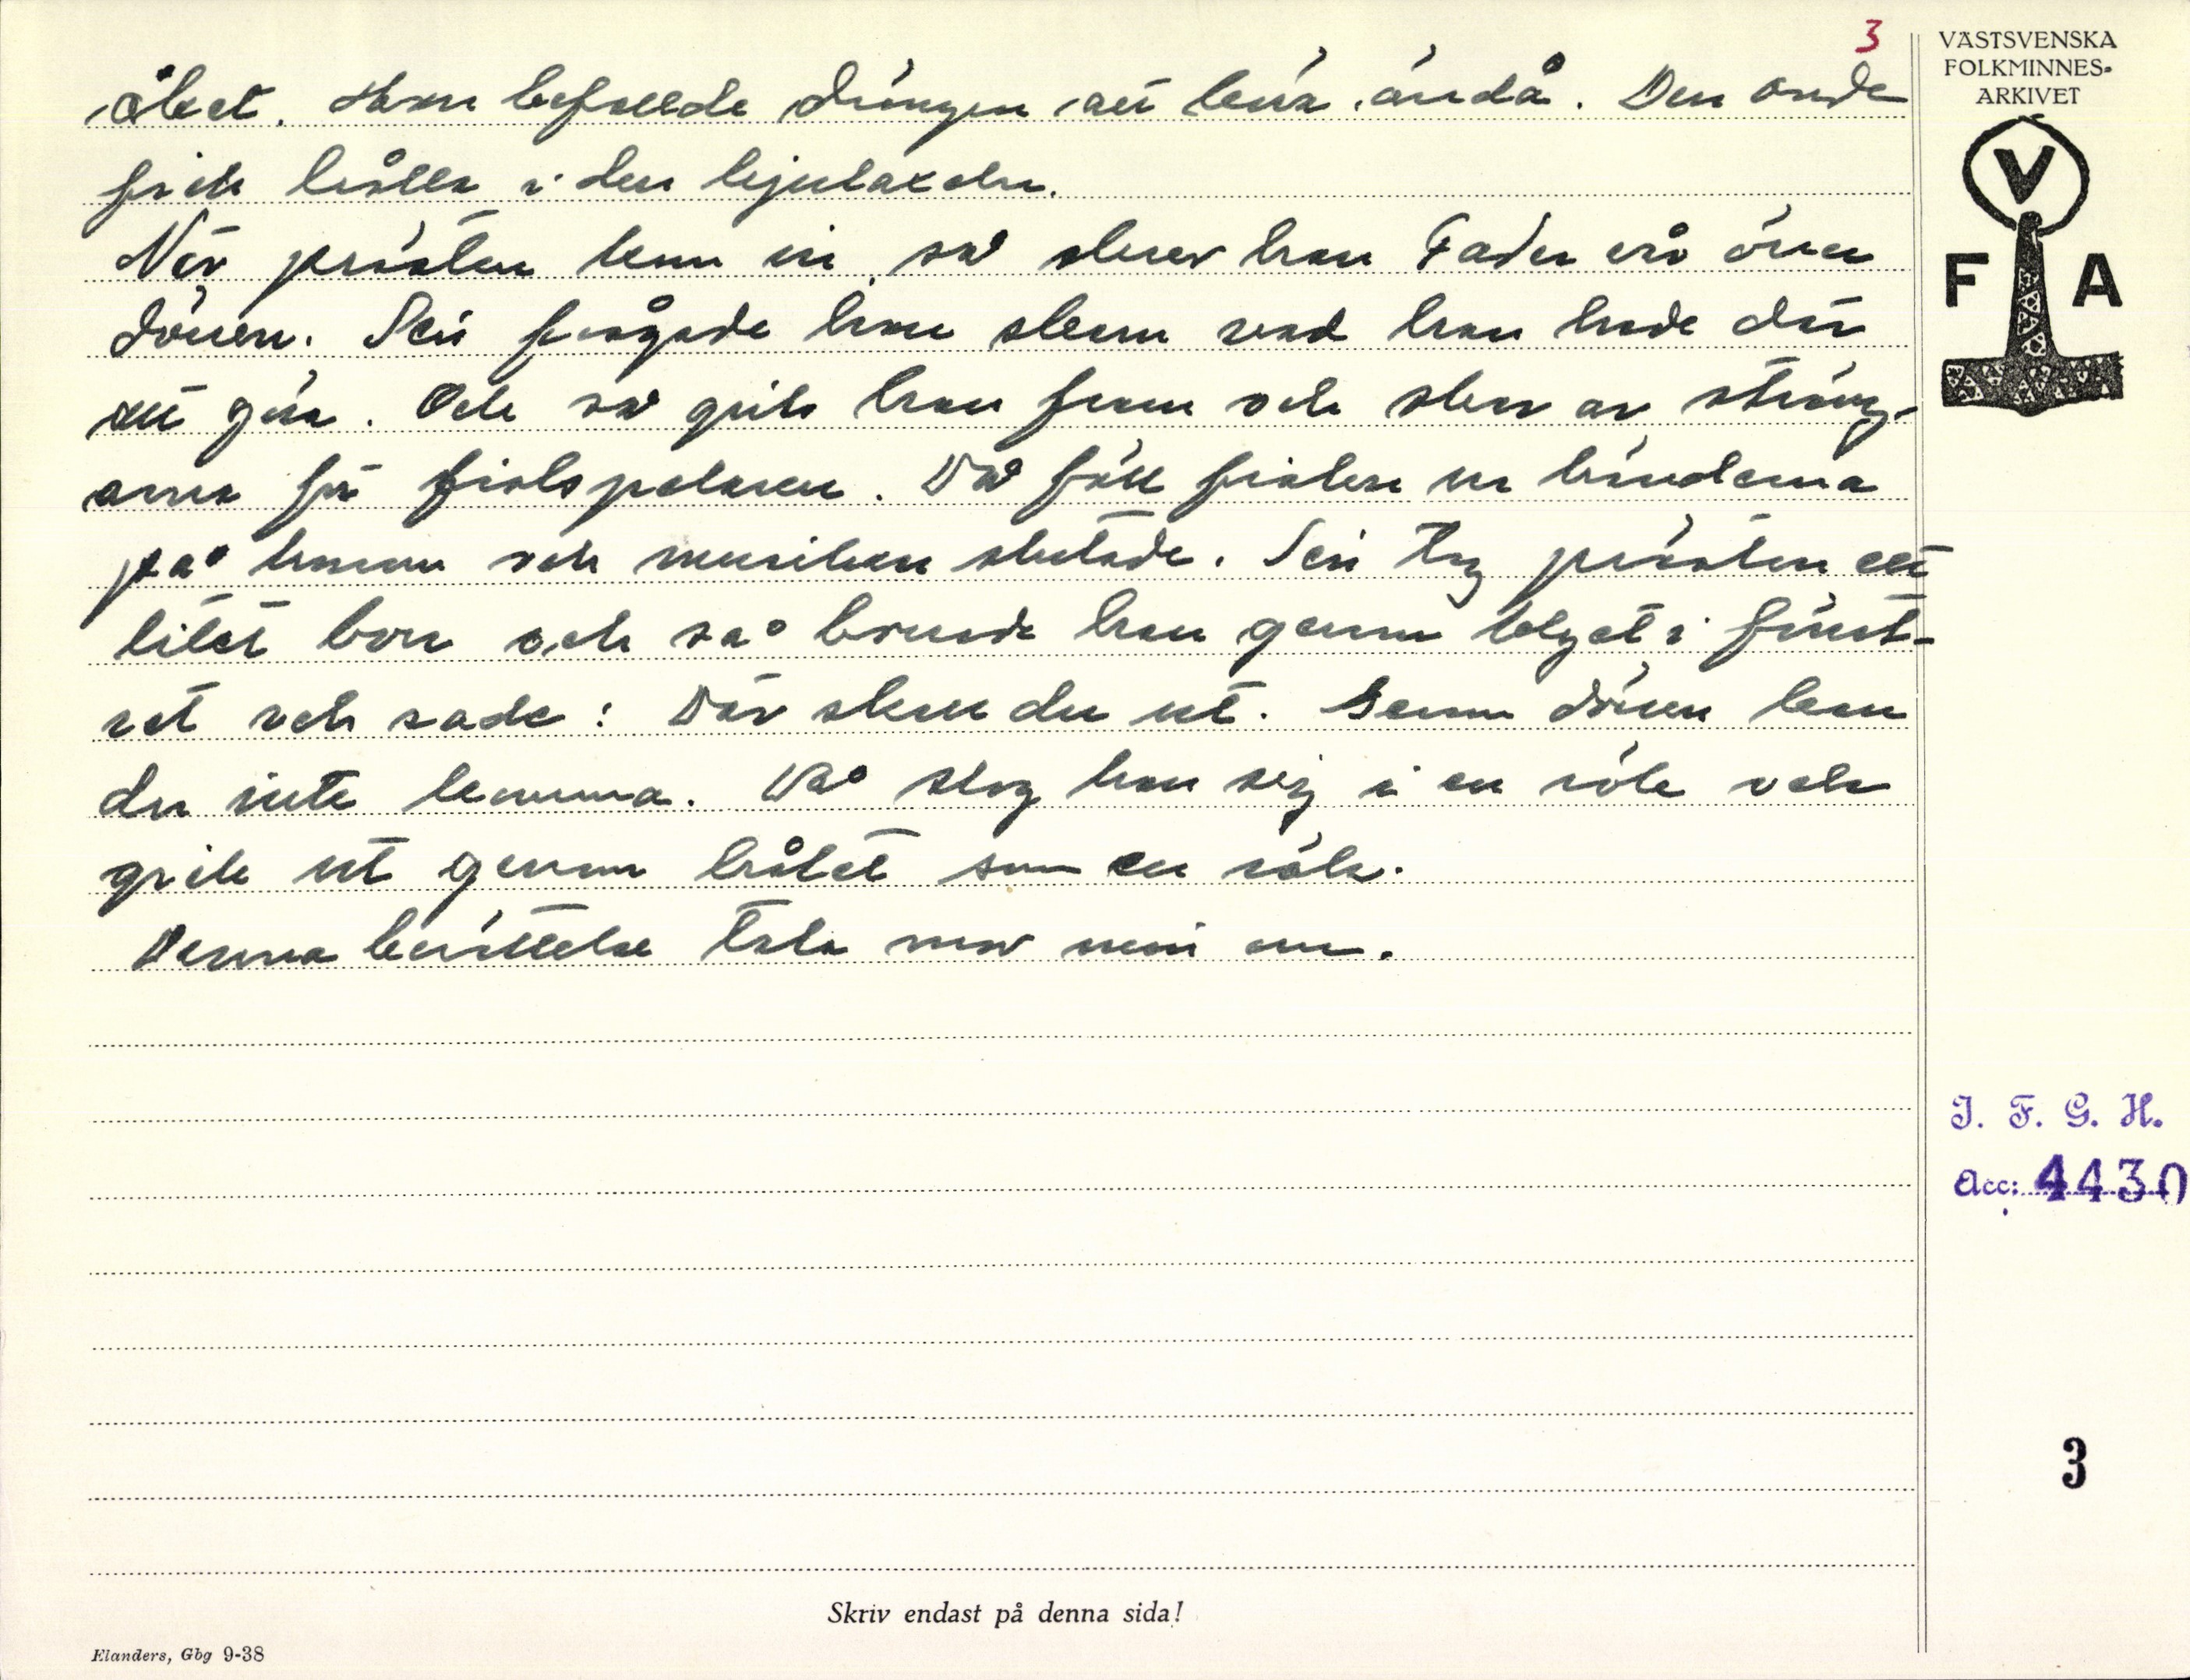 3
åket. Han befallde drängen att köra ändå. Den onde
fick hålla i den hjulaxeln.
När prästen kom in, så skrev han Fader vår över
dörren. Sen frågade han skam vad han hade där
att göra. Och så gick han fram och skar av sträng-
arna för fiolspelaren. Då föll fiolen ur händerna
på honom och musiken slutade. Sen tog prästen ett
litet borr och så borrade han genom blyet i fönst-
ret och sade: Där skall du ut. Genom dörren kan
du inte komma. Då slog han sig i en rök och
gick ut genom hålet som en rök.
Denna berättelse tala mor min om.
VÄSTSVENSKA
FOLKMINNES-
ARKIVET
V
F A
I. F. G. H.
Acc: 4430
3
Skriv endast på denna sida!
Elanders, Gbg 9-38